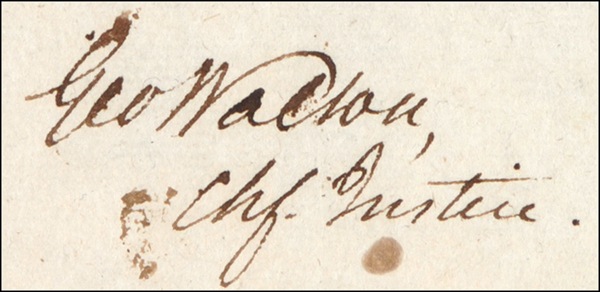 Geo Walton,
Chf. Justice.